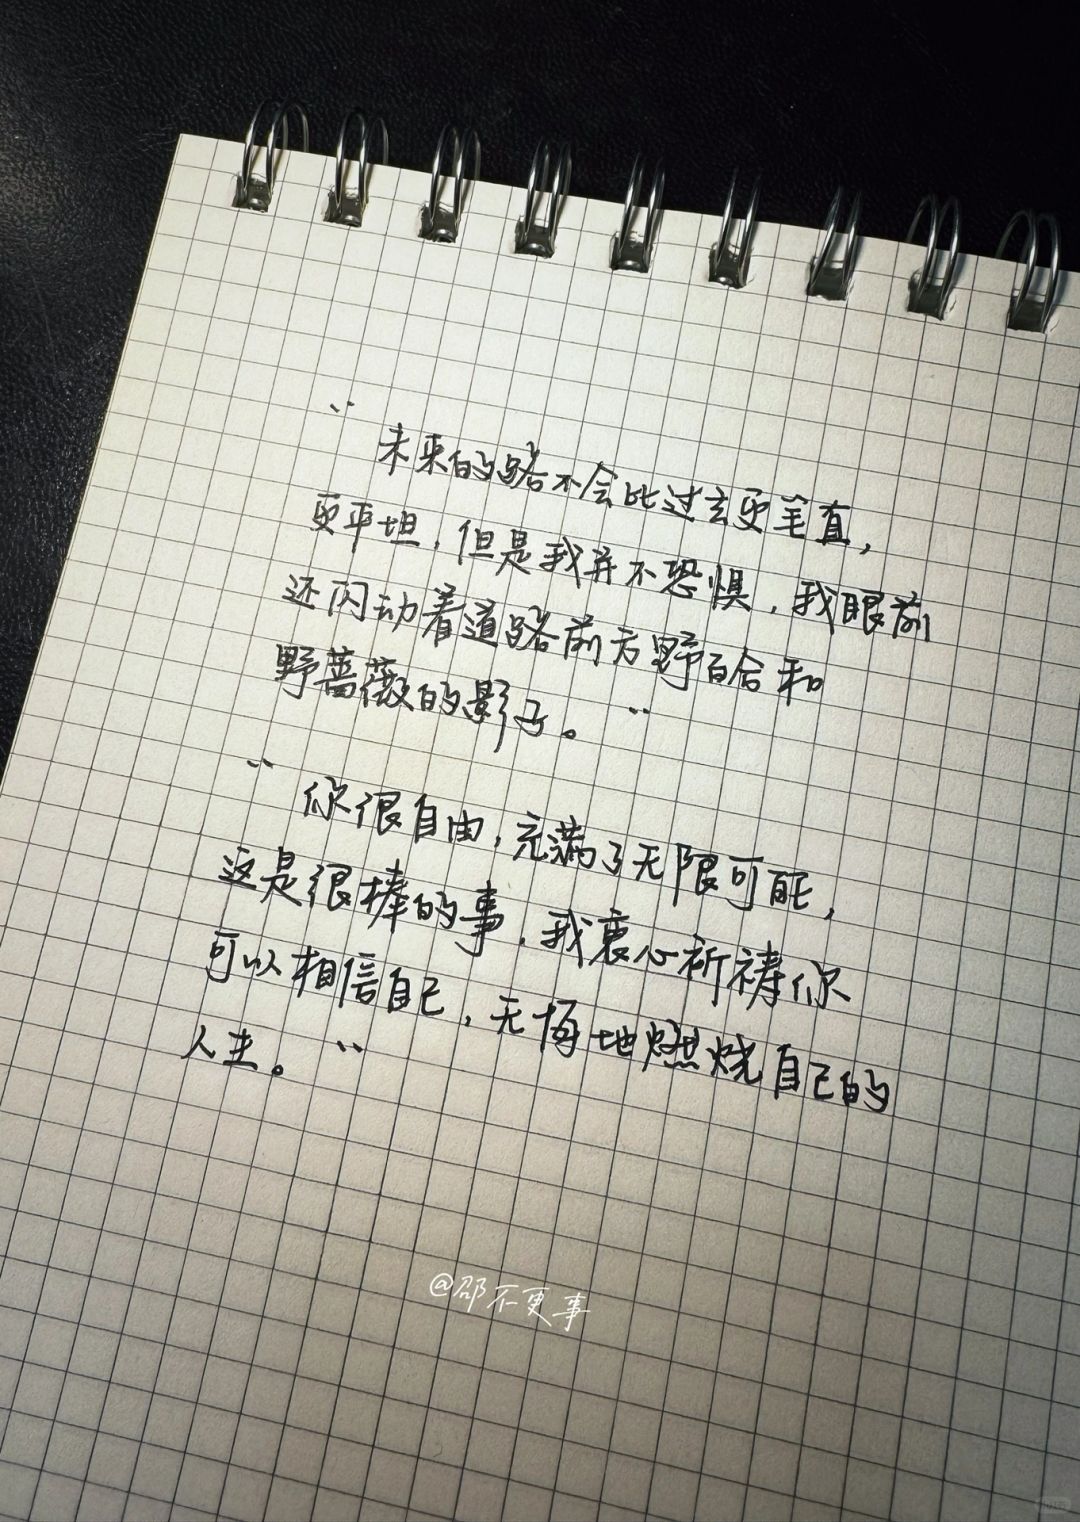 “未来的路不会比过去更笔直，
更平坦，但是我并不恐惧，我眼前
还闪动着道路前方野百合和
野蔷薇的影子。”
“你很自由，充满了无限可能，
这是很棒的事，我衷心祈祷你
可以相信自己，无悔地燃烧自己的
人生。”
@邵不更事